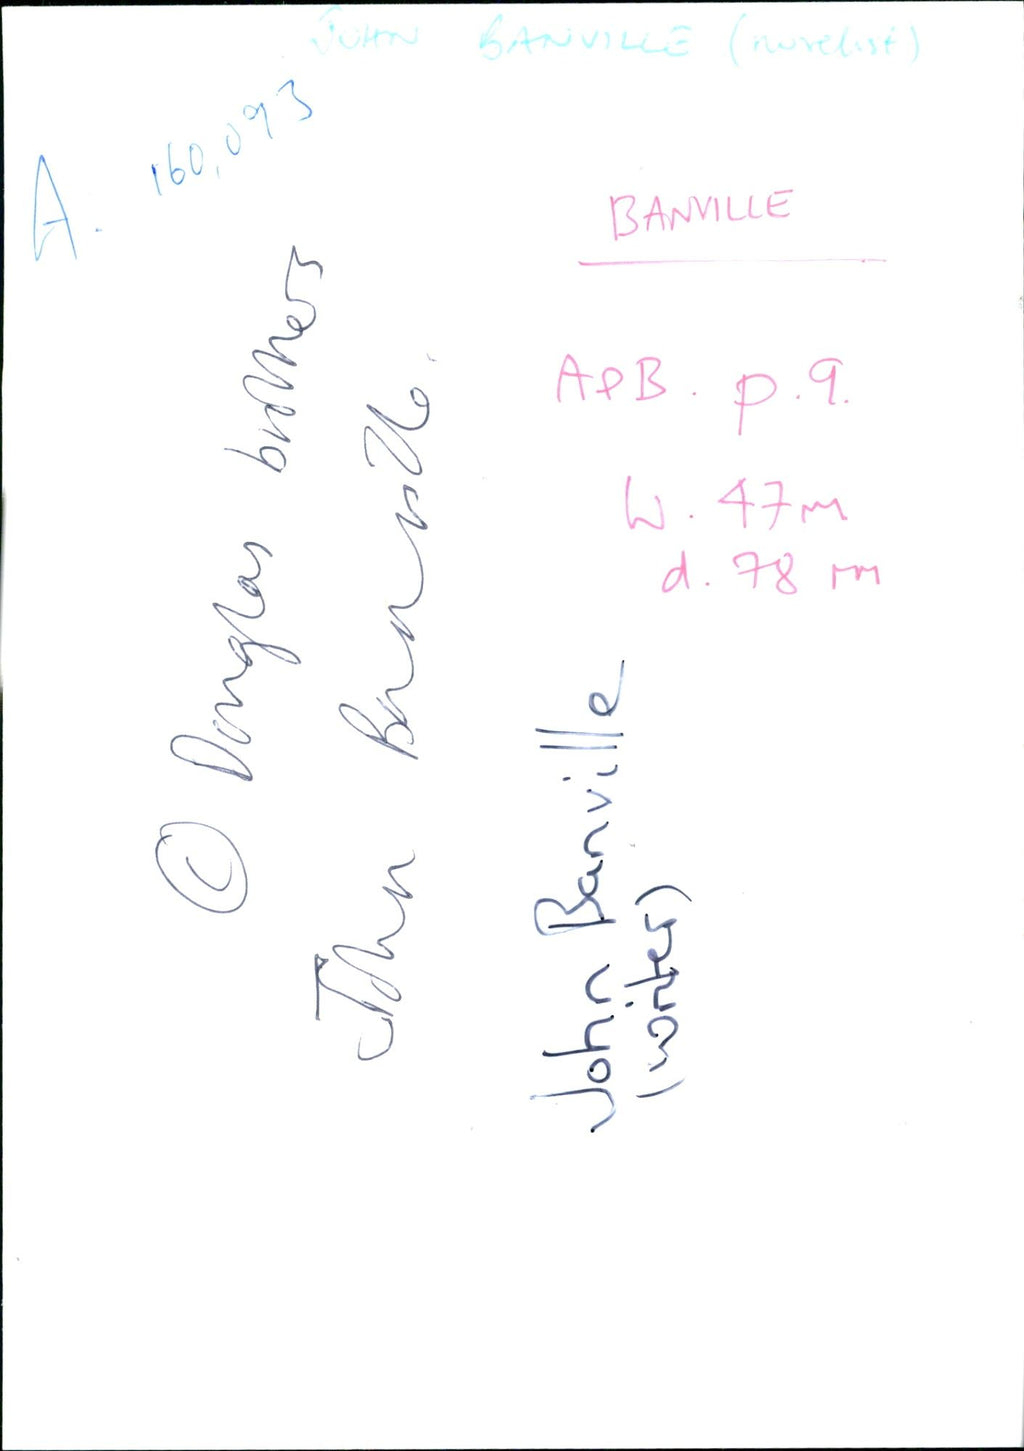 JOHN BANVILLE (novelist)
A. 160,093
BANVILLE
A&B. p.9.
W. 47m
d. 78 mm
© Douglas brothers
John Banville.
John Banville
(writer)